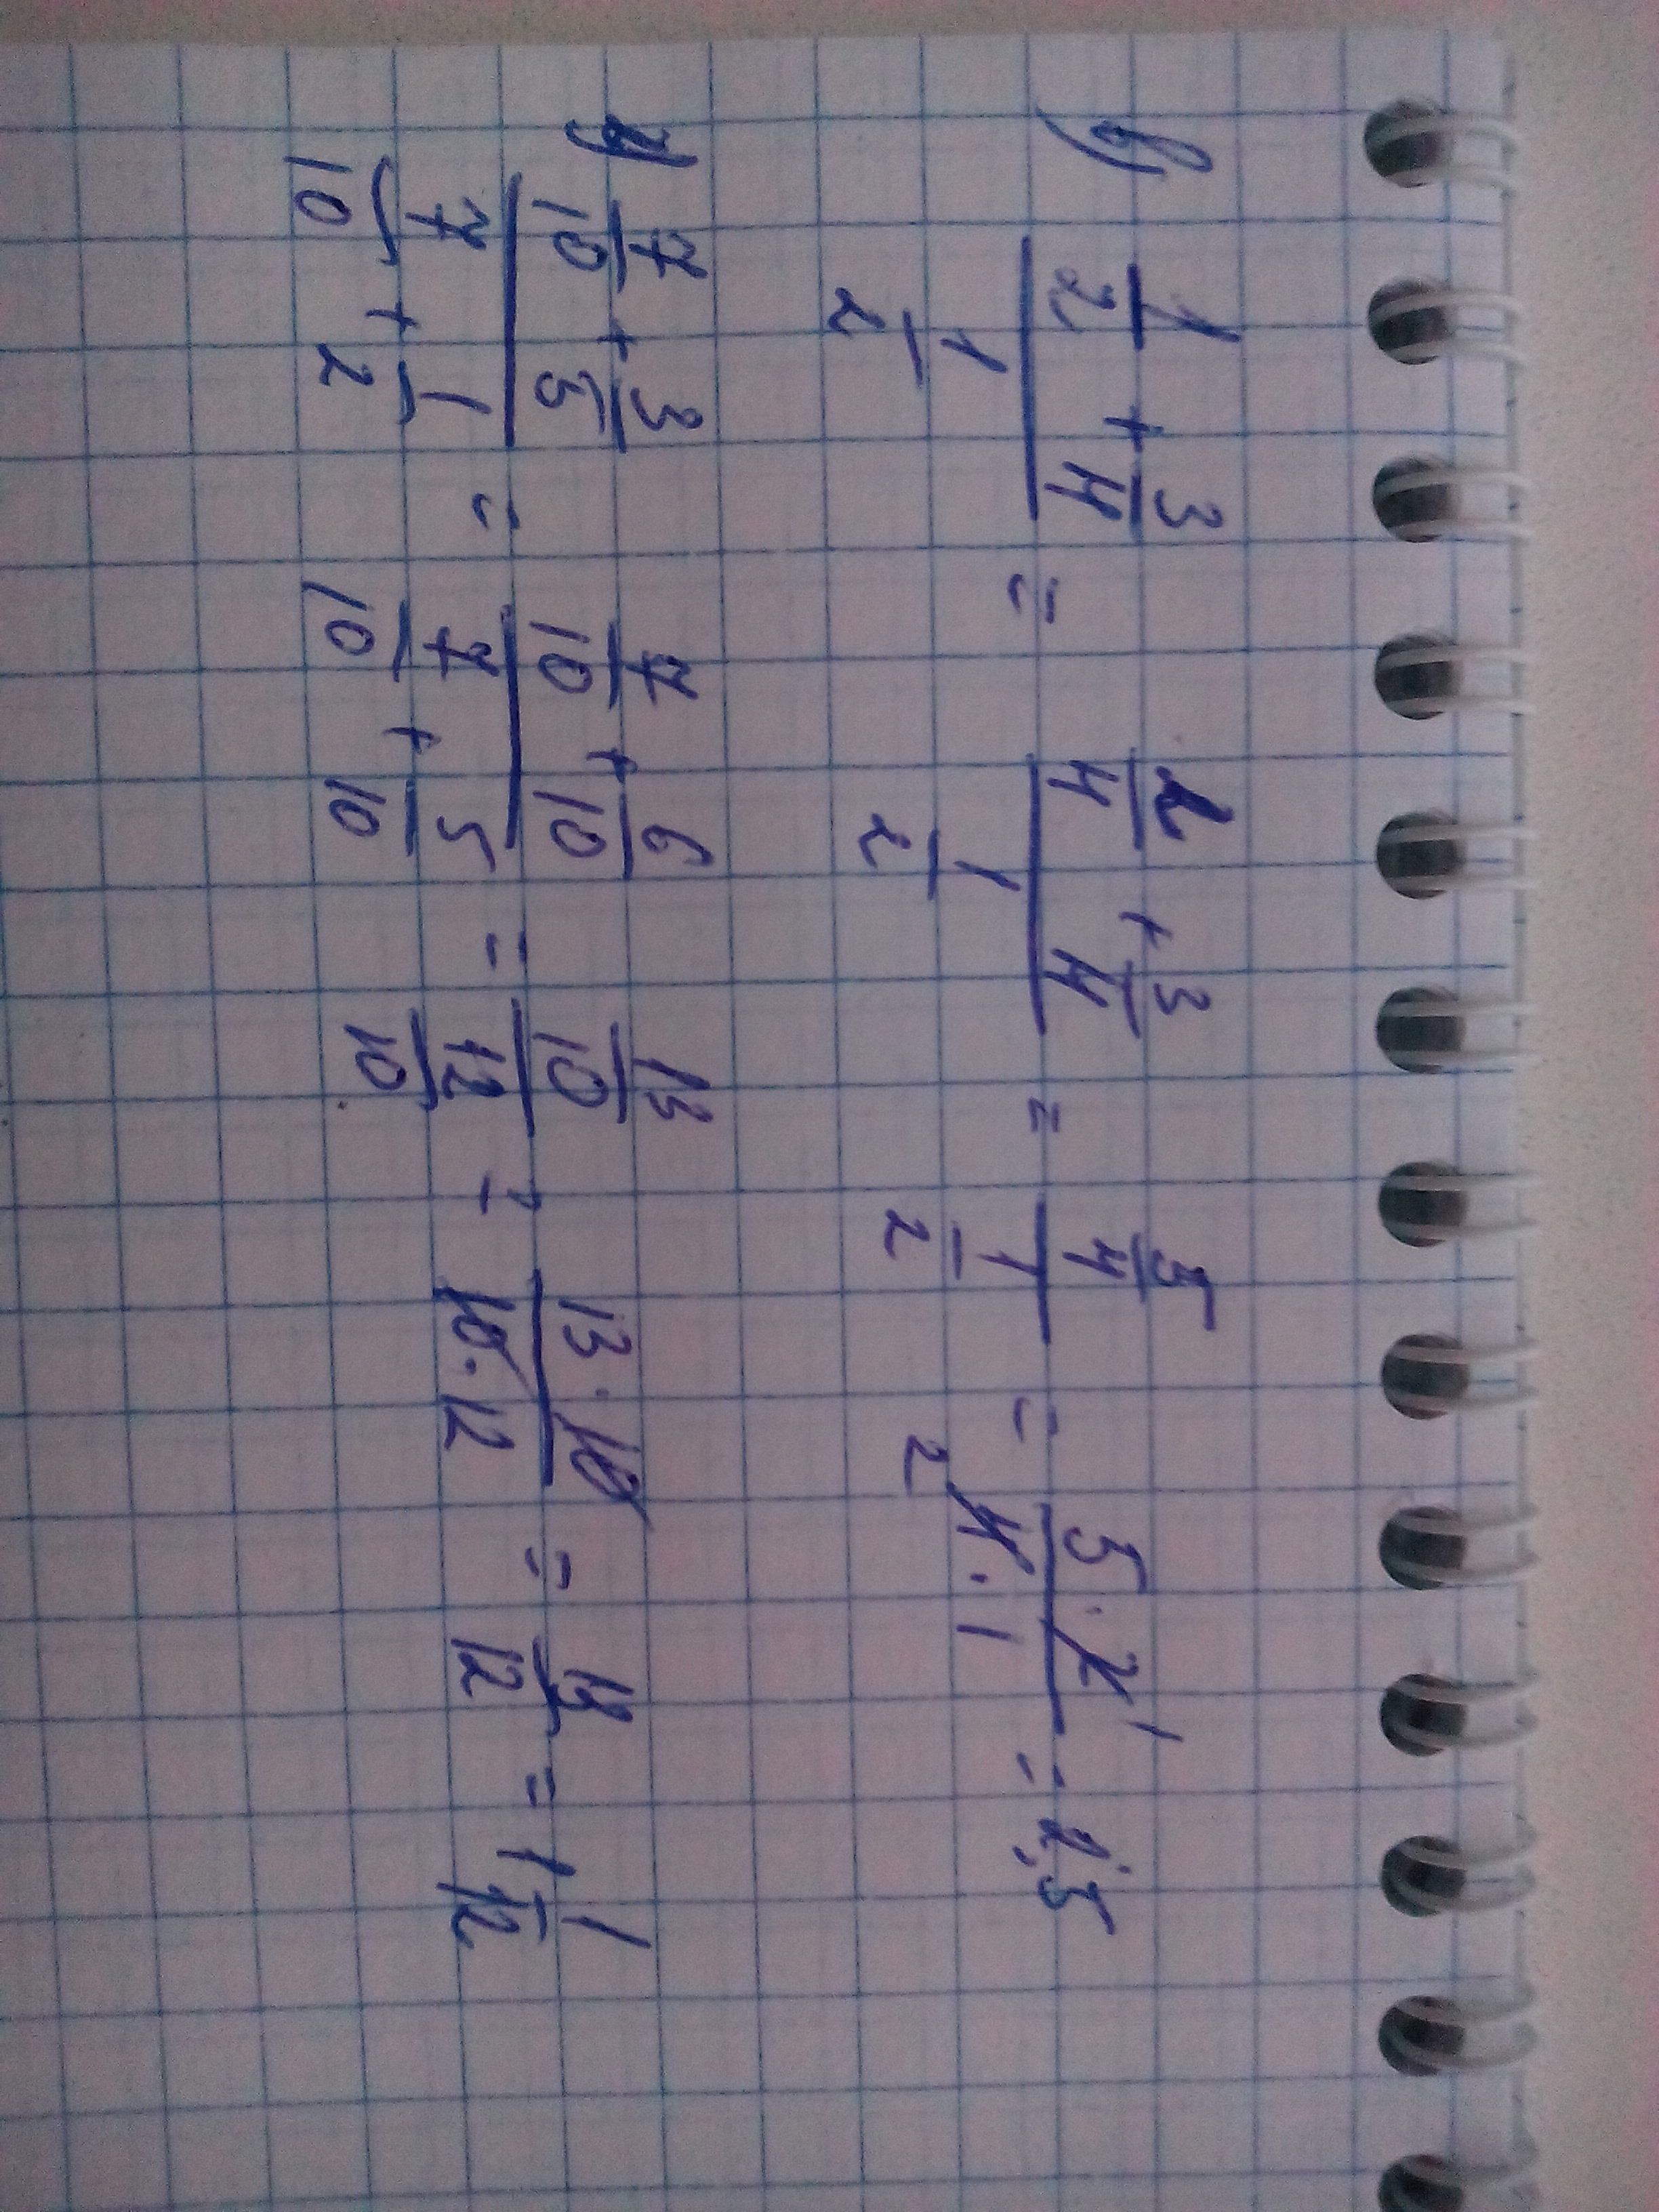 в) (1/2 + 3/4)/(1/2) = (2/4 + 3/4)/(1/2) = (5/4)/(1/2) = (5·2)/(4·1) = 2,5
г) (7/10 + 3/5)/(7/10 + 1/2) = (7/10 + 6/10)/(7/10 + 5/10) = (13/10)/(12/10) = (13·10)/(10·12) = 13/12 = 1 1/12